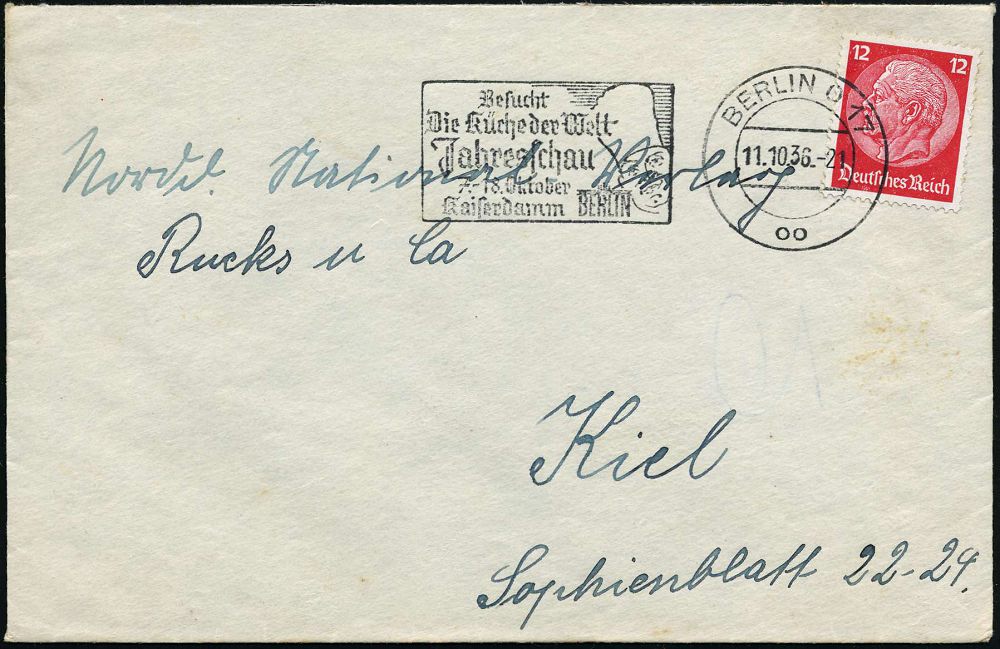 12 12
Deutsches Reich
BERLIN O 17
11.10.36.-21
oo
Besucht
Die Küche der Welt
Jahresschau
7.-18. Oktober
Kaiserdamm BERLIN
Nordd. National Verlag
Rucks u Co
Kiel
Sophienblatt 22-24.